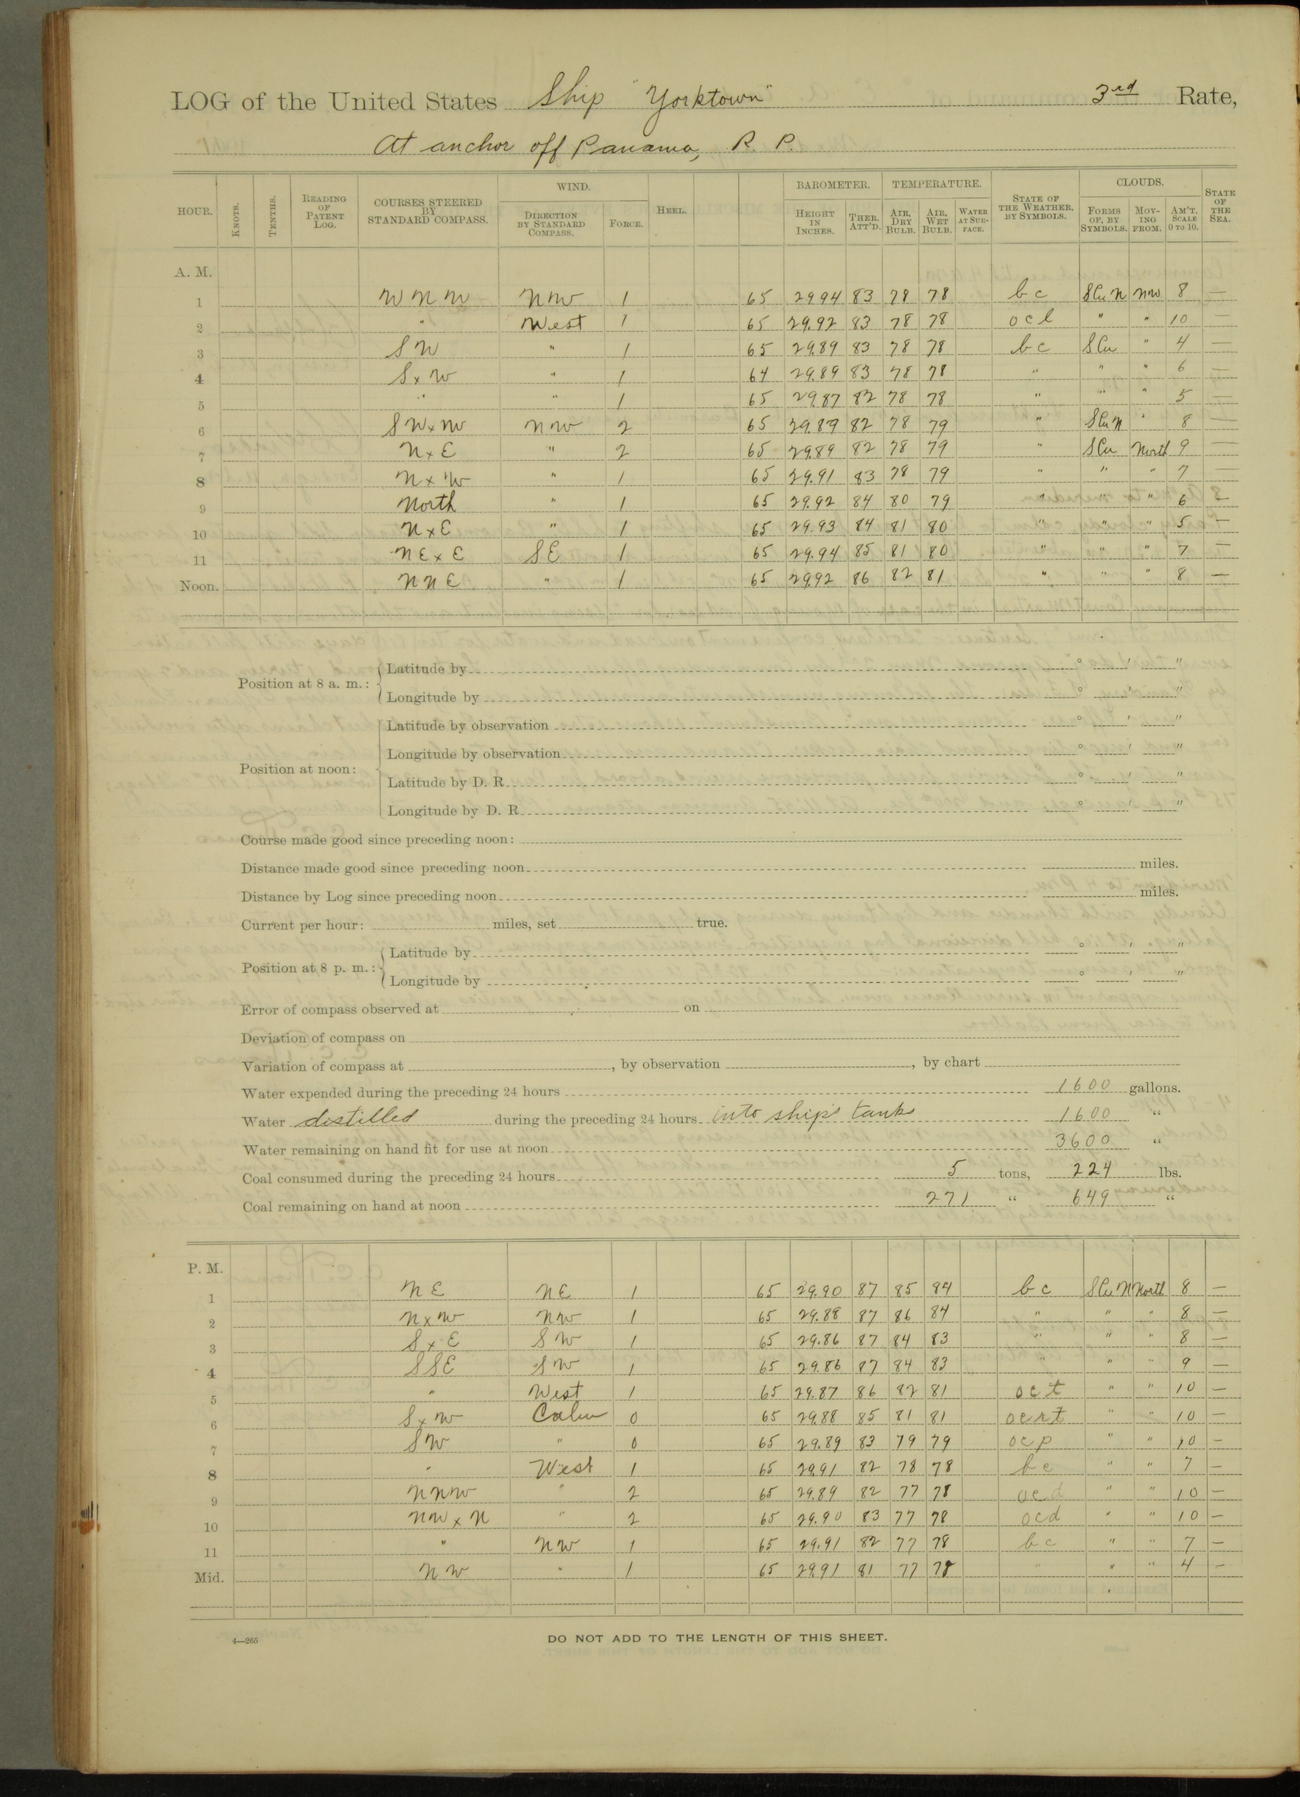 LOG of the United States Ship "Yorktown" 3rd Rate,
At anchor off Panama, R. P.
HOUR. KNOTS. TENTHS. READING OF PATENT LOG. COURSES STEERED BY STANDARD COMPASS. WIND. DIRECTION BY STANDARD COMPASS. FORCE. HEEL. BAROMETER. HEIGHT IN INCHES. THER. ATT'D. TEMPERATURE. AIR, DRY BULB. AIR, WET BULB. WATER AT SURFACE. STATE OF THE WEATHER, BY SYMBOLS. CLOUDS. FORMS OF, BY SYMBOLS. MOVING FROM. AM'T. SCALE 0 TO 10. STATE OF THE SEA.
A. M.
1 W N W NW 1 65 29.94 83 78 78 bc SCu N NW 8 —
2 " West 1 65 29.92 83 78 78 ocl " " 10 —
3 SW " 1 65 29.89 83 78 78 bc SCu " 4 —
4 SxW " 1 64 29.89 83 78 78 " " " 6 —
5 " " 1 65 29.87 82 78 78 " " " 5 —
6 SWxW NW 2 65 29.89 82 78 79 " SCu N " 8 —
7 NxE " 2 65 29.89 82 78 79 " SCu North 9 —
8 NxW " 1 65 29.91 83 78 79 " " " 7 —
9 North " 1 65 29.92 84 80 79 " " " 6 —
10 NxE " 1 65 29.93 84 81 80 " " " 5 —
11 NExE SE 1 65 29.94 85 81 80 " " " 7 —
Noon. NNE " 1 65 29.92 86 82 81 " " " 8 —
Position at 8 a. m.: Latitude by ° ' "
Longitude by ° ' "
Position at noon: Latitude by observation ° ' "
Longitude by observation ° ' "
Latitude by D. R. ° ' "
Longitude by D. R. ° ' "
Course made good since preceding noon:
Distance made good since preceding noon miles.
Distance by Log since preceding noon miles.
Current per hour: miles, set true.
Position at 8 p. m.: Latitude by ° ' "
Longitude by ° ' "
Error of compass observed at on
Deviation of compass on
Variation of compass at , by observation , by chart
Water expended during the preceding 24 hours 1600 gallons.
Water distilled during the preceding 24 hours into ship's tanks 1600 "
Water remaining on hand fit for use at noon 3600 "
Coal consumed during the preceding 24 hours 5 tons, 224 lbs.
Coal remaining on hand at noon 271 " 649 "
P. M.
1 NE NE 1 65 29.90 87 85 84 bc SCu N North 8 —
2 NxW NW 1 65 29.88 87 86 84 " " " 8 —
3 SxE SW 1 65 29.86 87 84 83 " " " 8 —
4 SSE SW 1 65 29.86 87 84 83 " " " 9 —
5 " West 1 65 29.87 86 82 81 oct " " 10 —
6 SxW Calm 0 65 29.88 85 81 81 ocrt " " 10 —
7 SW " 0 65 29.89 83 79 79 ocp " " 10 —
8 " West 1 65 29.91 82 78 78 bc " " 7 —
9 NNW " 2 65 29.89 82 77 78 ocd " " 10 —
10 NWxN " 2 65 29.90 83 77 78 ocd " " 10 —
11 " NW 1 65 29.91 82 77 78 bc " " 7 —
Mid. NW " 1 65 29.91 81 77 78 " " " 4 —
4—265
DO NOT ADD TO THE LENGTH OF THIS SHEET.